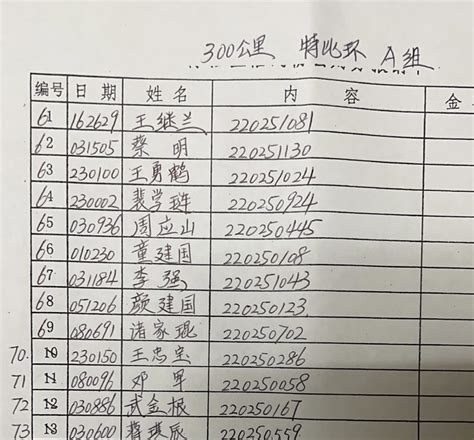 300公里 特比环 A组
编号 日期 姓名 内容 金
61 162629 王继兰 220251081
62 031505 蔡明 220251130
63 230100 王勇鹤 220251024
64 230002 裴学琏 220250924
65 030936 周应山 220250445
66 010230 童建国 220250108
67 031184 李强 220251043
68 051206 颜建国 220250123
69 080691 诸家琨 220250702
70. 10 230150 王忠宝 220250286
71 11 080096 邓早 220250058
72 12 030886 武金根 220250167
73 13 030600 蒋琪辰 220250559